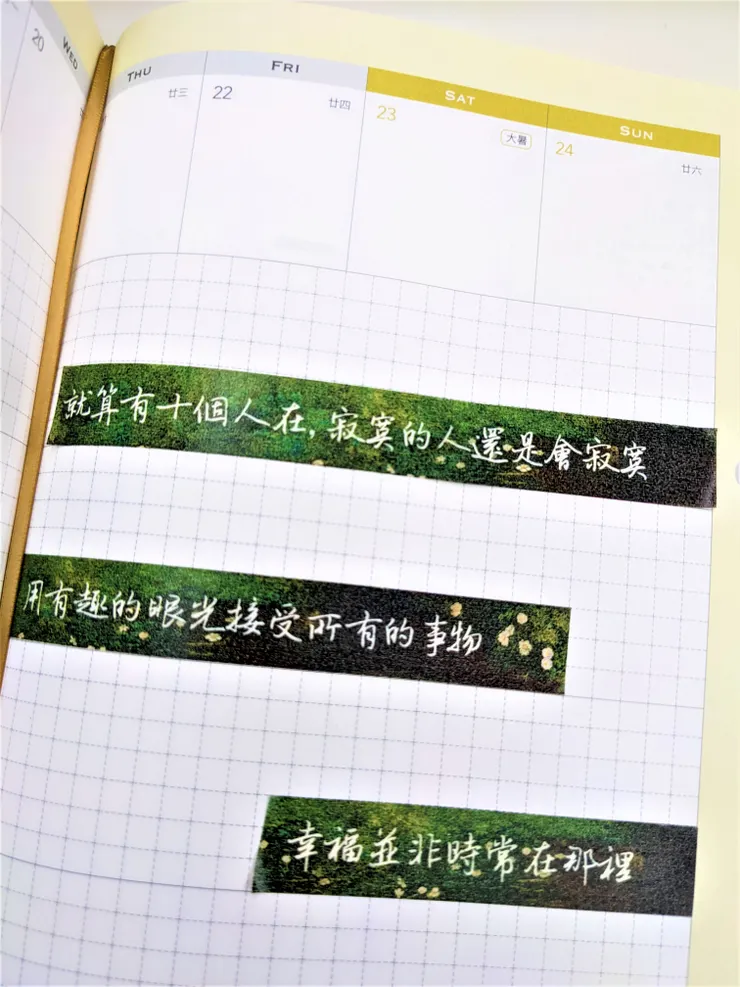 20 WED
THU 廿三
FRI
22 廿四
SAT
23 大暑
SUN
24 廿六
就算有十個人在,寂寞的人還是會寂寞
用有趣的眼光接受所有的事物
幸福並非時常在那裡